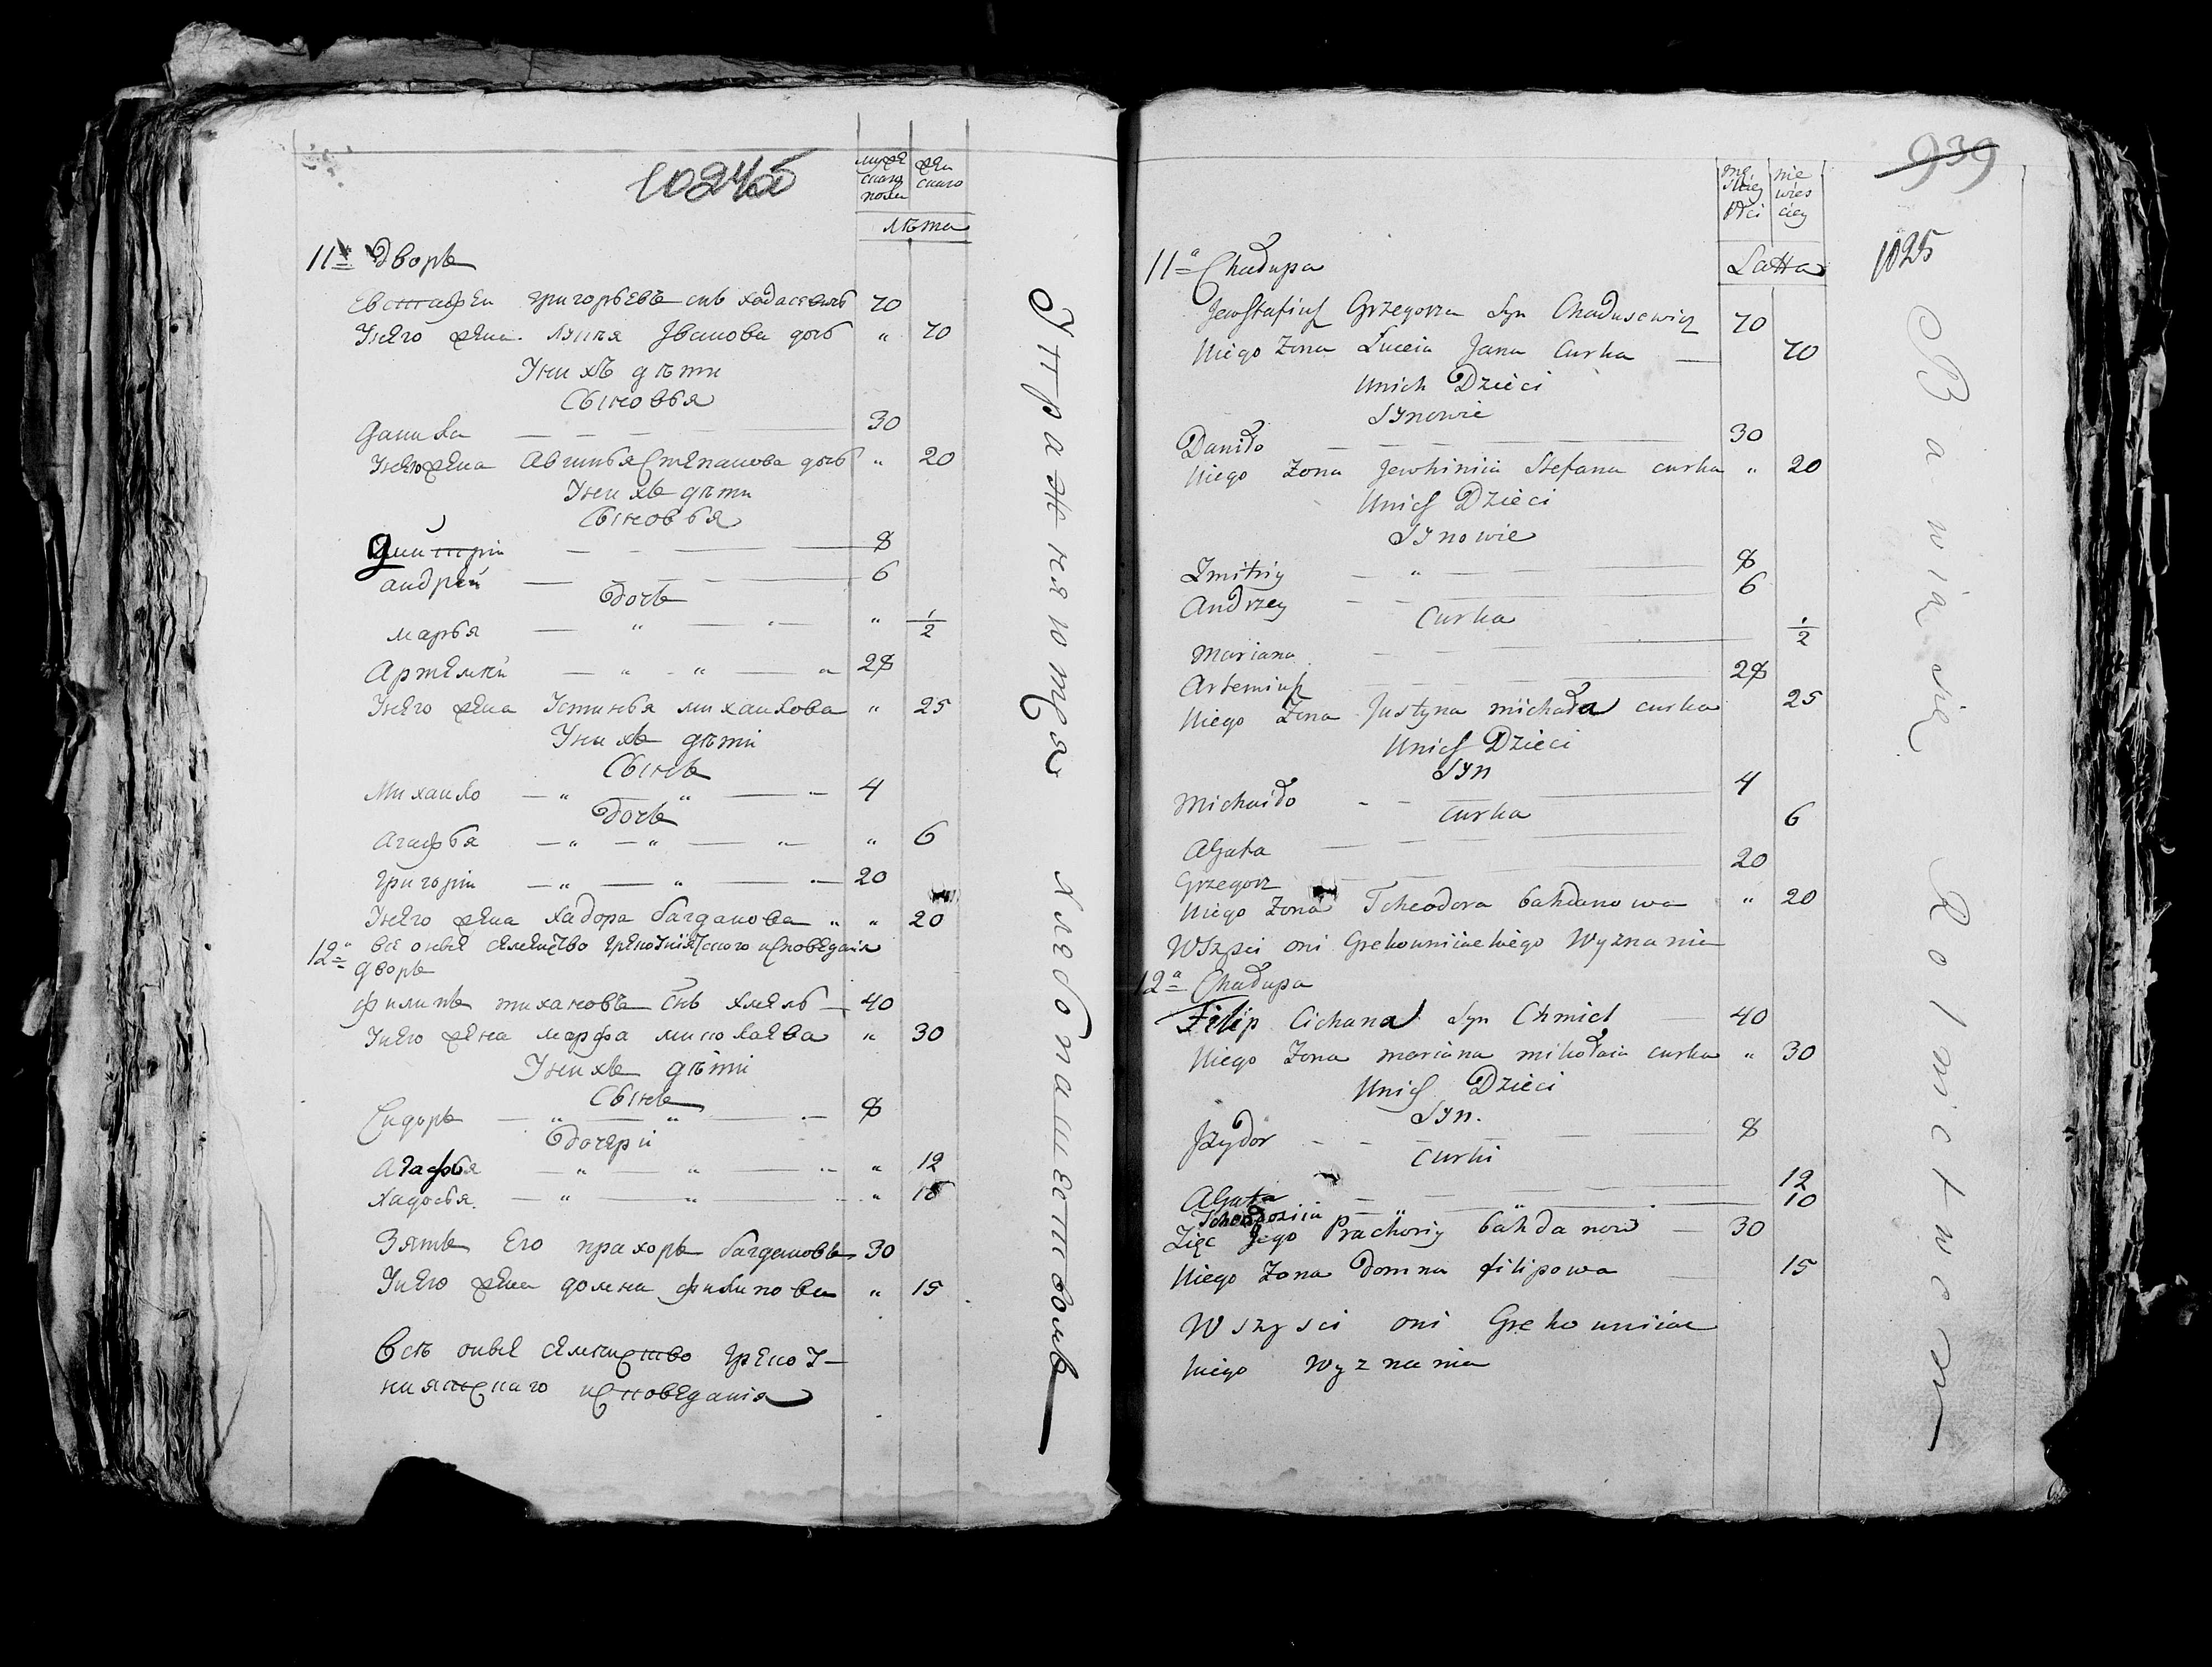 1024об
мужескаго полу
женскаго
лѣта
11ѣ дворъ
Евстафеи григорьевъ снъ хадасевичъ 70
Унего жена луцея Jванова дочь " 70
Унихъ дѣти
Сыновья
Данила — — — 30
Унего жена Авгинья Степанова дочь " 20
Унихъ дѣти
Сыновья
Дмитріи — — — 8
андреи — — — 6
дочь
марья — " — " — " 1/2
Артемеи — " - " — " 28
Унего жена Устинья михаилова " 25
Унихъ дѣти
Сынъ
Михаило — " — " — " 4
дочь
Агафья — " — " — " — " 6
григоріи — " — " — 20
Унего жена хадора багданова " " 20
все оные семейство грекоуніятского исповеданія
12ѣ дворъ
филипъ тихановъ снъ хмель — 40
Унего жена марфа миколаева " 30
Унихъ дѣти
Сынъ
Сидоръ — " — " — 8
дочери
Агафья — " — " — " " 12
хадосья — " — " — " 10
Зять Его прахоръ багдановъ 30
Унего жена домна филипова " 15
всѣ оные семейство грекоу-
ниятскаго исповеданія
Упражняютця хлебопашествомъ
939
1025
męskiey płci
niewiesciey
Latta
11a Chałupa
Jewstafiusz Grzegorza Syn Chadusewicz 70
Uniego Zona Luceia Jana Curka — 70
Unich Dzieci
Synowie
Daniło — — — 30
Uniego Zona Jewhiniia Stefana curka " 20
Unich Dzieci
Synowie
Zmitriy — " — — 8
Andrzey — — — 6
Curka
Mariana — — 1/2
Artemiusz — — 28
Uniego Zona Justyna michała curka 25
Unich Dzieci
Syn
Michaiło - - — 4
curka
Agata — — 6
Grzegorz — — 20
Uniego Zona Tcheodora bahdanowa " 20
Wszysci oni Grekouniackiego Wyznania
12a Chałupa
Filip Cichana Syn Chmiel — 40
Uniego Zona mariana mikołaia curka " 30
Unich Dzieci
Syn.
Jzydor - - — — 8
curki
Agata — — 12
Tcheodoziia — — 10
Zięc Jego Prachoriy bahdanow — 30
Uniego Zona Domna filipowa — 15
Wszysci oni Grekouniiac
kiego wyznania
Bawią się Rolnictwem